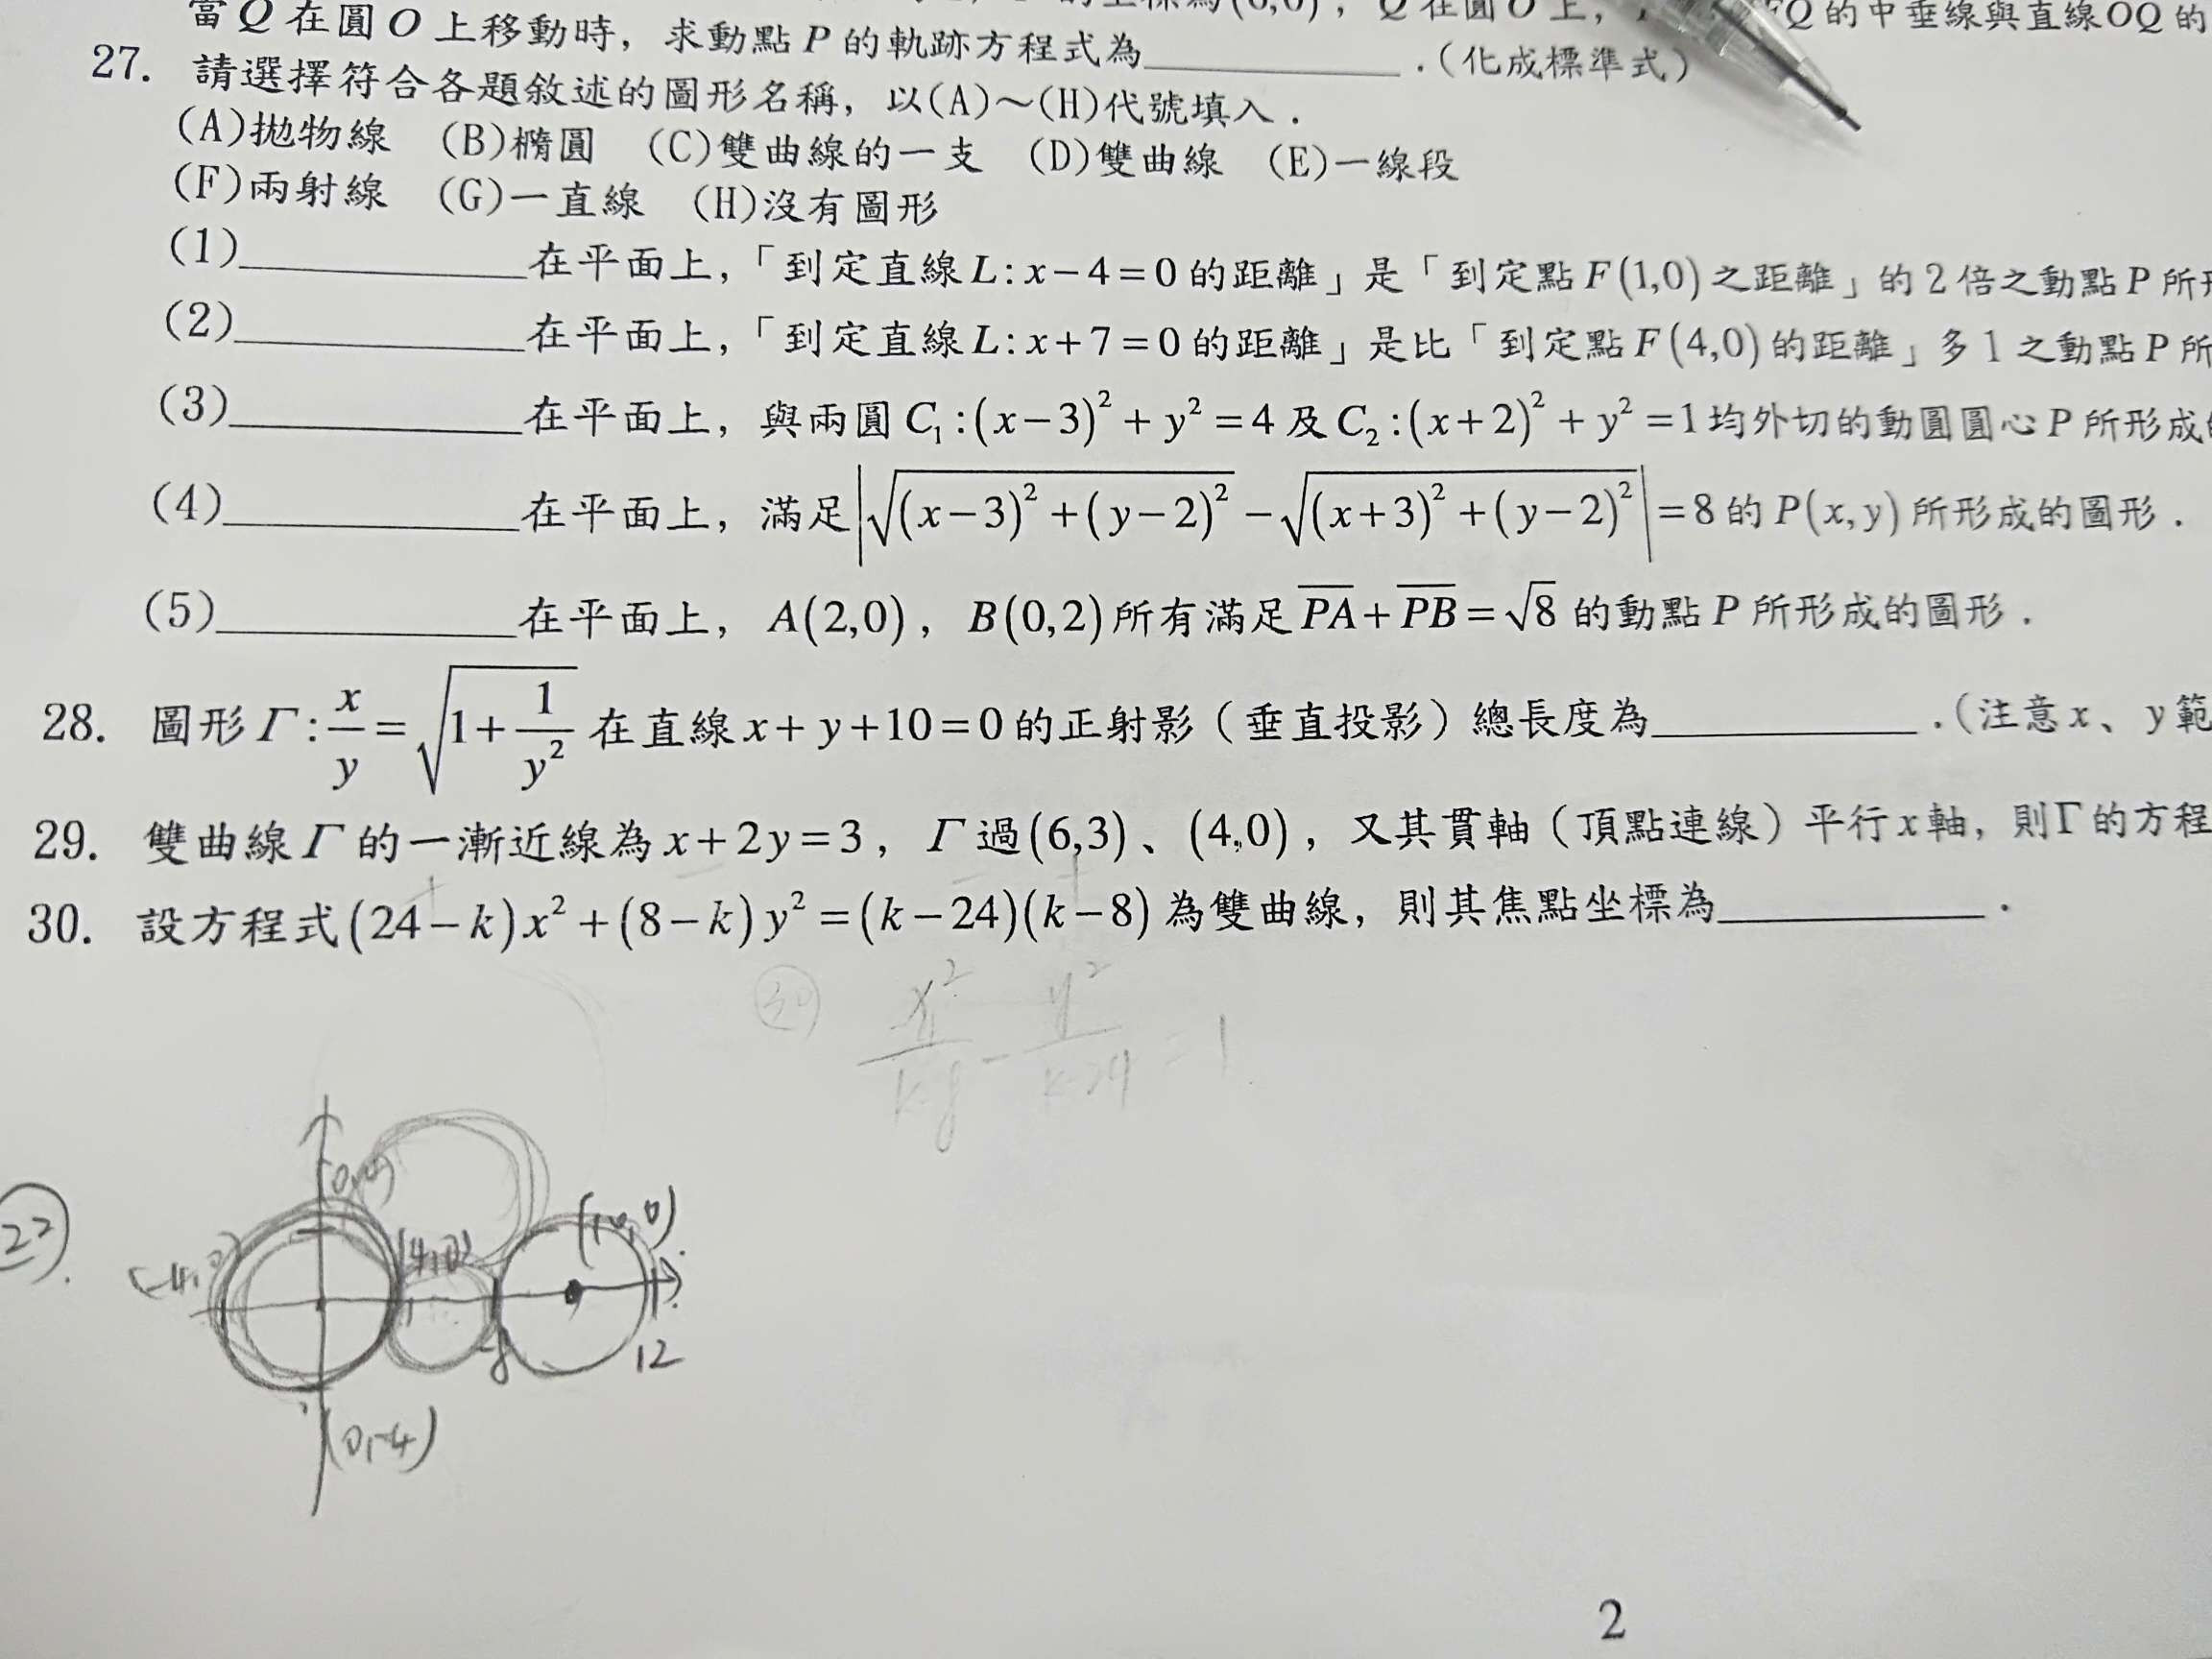 當Q在圓O上移動時，求動點P的軌跡方程式為__________.(化成標準式)
27. 請選擇符合各題敘述的圖形名稱，以(A)～(H)代號填入.
(A)拋物線 (B)橢圓 (C)雙曲線的一支 (D)雙曲線 (E)一線段
(F)兩射線 (G)一直線 (H)沒有圖形
(1)__________在平面上，「到定直線L:x−4=0的距離」是「到定點F(1,0)之距離」的2倍之動點P所形
(2)__________在平面上，「到定直線L:x+7=0的距離」是比「到定點F(4,0)的距離」多1之動點P所
(3)__________在平面上，與兩圓C₁:(x−3)²+y²=4及C₂:(x+2)²+y²=1均外切的動圓圓心P所形成
(4)__________在平面上，滿足|√((x−3)²+(y−2)²)−√((x+3)²+(y−2)²)|=8的P(x,y)所形成的圖形.
(5)__________在平面上，A(2,0)，B(0,2)所有滿足PA+PB=√8的動點P所形成的圖形.
28. 圖形Γ:x/y=√(1+1/y²)在直線x+y+10=0的正射影（垂直投影）總長度為__________.(注意x、y範
29. 雙曲線Γ的一漸近線為x+2y=3，Γ過(6,3)、(4,0)，又其貫軸（頂點連線）平行x軸，則Γ的方程
30. 設方程式(24−k)x²+(8−k)y²=(k−24)(k−8)為雙曲線，則其焦點坐標為__________.
30 x²/k-8 − y²/k-24 = 1
22.
(4,0)
(10,0)
8
12
(0,-4)
2